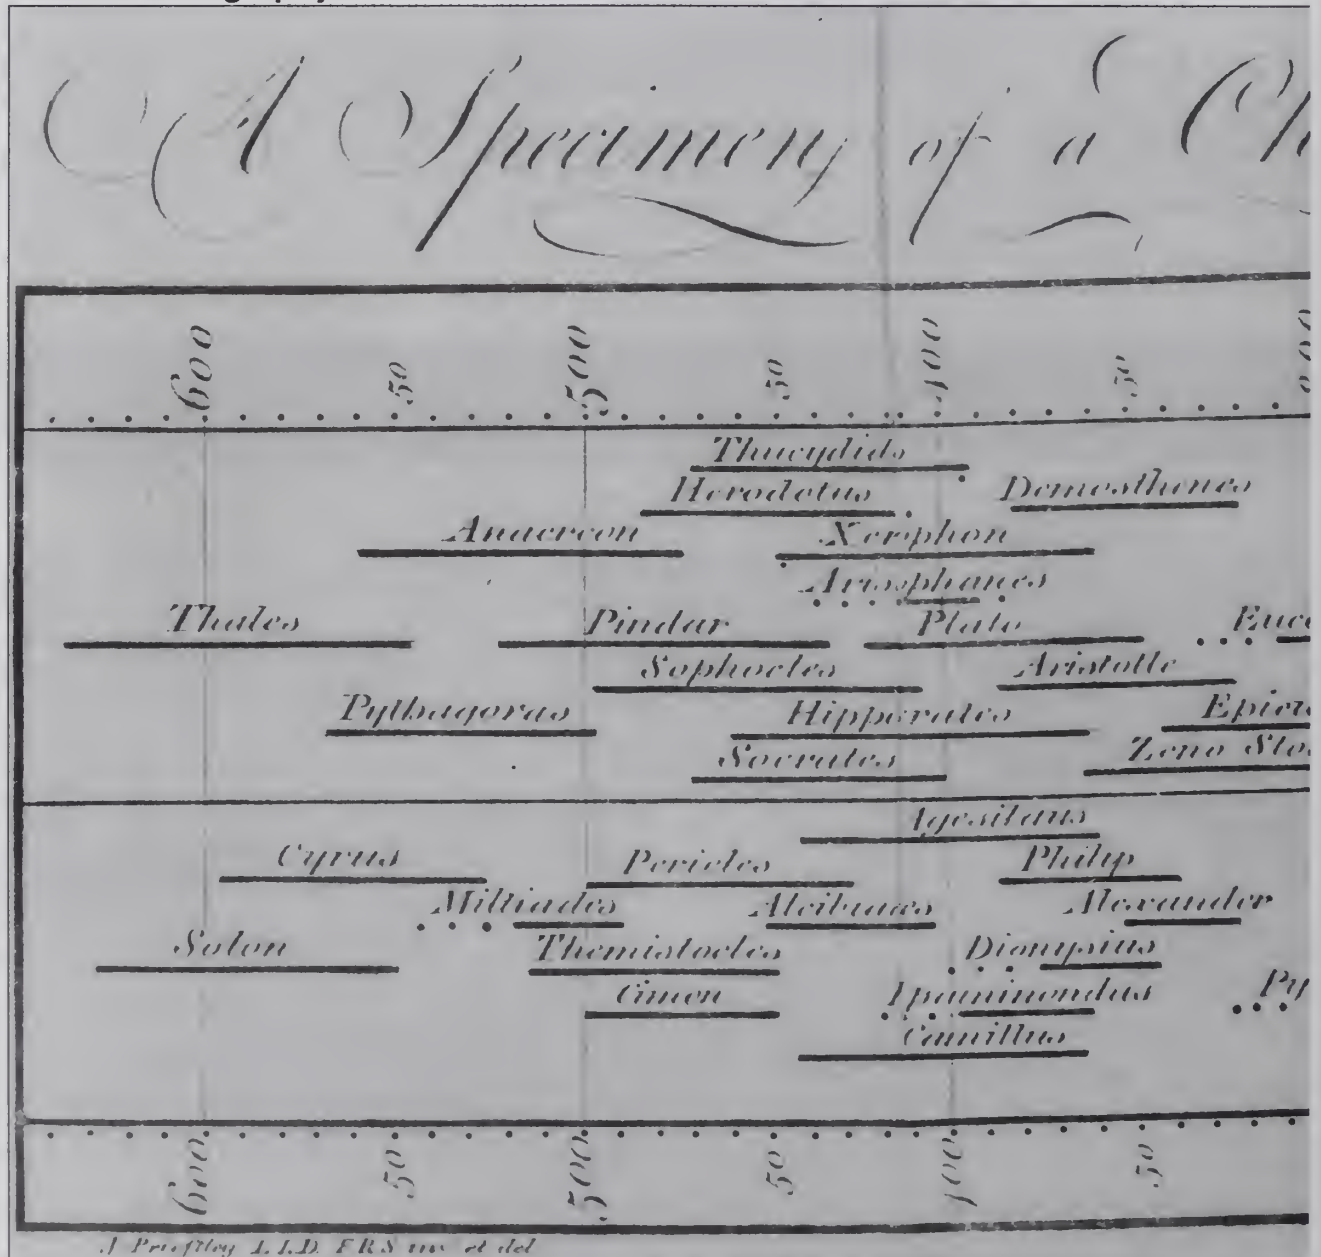 A Specimen of a Ch
600 50 500 50 400 50
Thucydids
Herodotus Demosthenes
Anacreon Xenphon
Arisophanes
Thales Pindar Plato Euc
Sophocles Aristotle
Pythagoras Hipporates Epicu
Socrates Zeno Sto
Agesilaus
Cyrus Pericles Philip
Miltiades Alcibiades Alexander
Solon Themistocles Dionysius
Cimon Epaminondas Py
Camillus
600 50 500 50 400 50
J Priestley L.L.D. F.R.S inv. et del